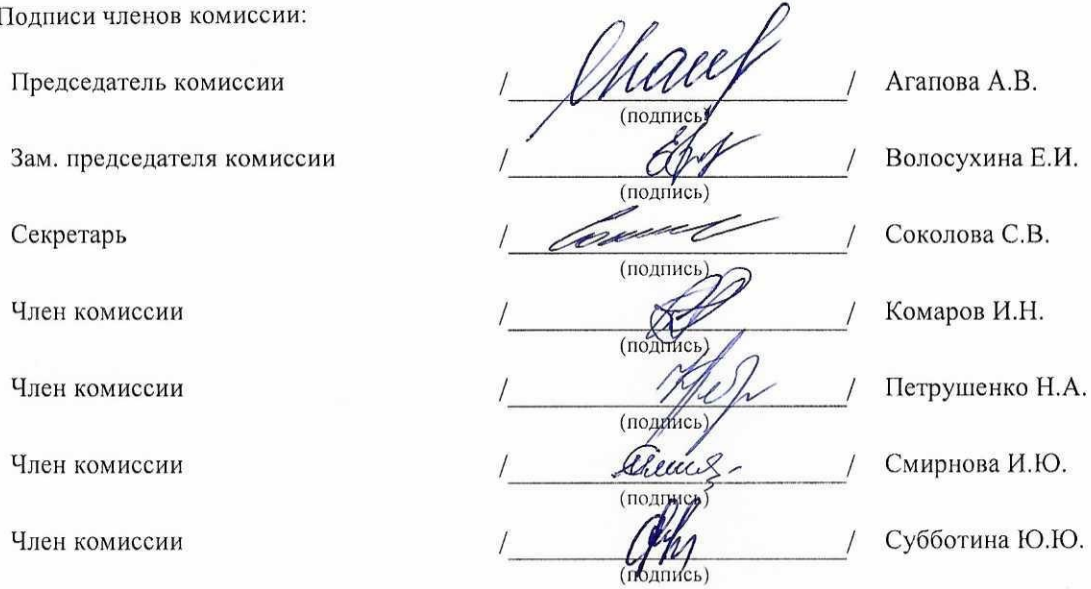 Подписи членов комиссии:
Председатель комиссии / / Агапова А.В.
(подпись)
Зам. председателя комиссии / / Волосухина Е.И.
(подпись)
Секретарь / / Соколова С.В.
(подпись)
Член комиссии / / Комаров И.Н.
(подпись)
Член комиссии / / Петрушенко Н.А.
(подпись)
Член комиссии / / Смирнова И.Ю.
(подпись)
Член комиссии / / Субботина Ю.Ю.
(подпись)